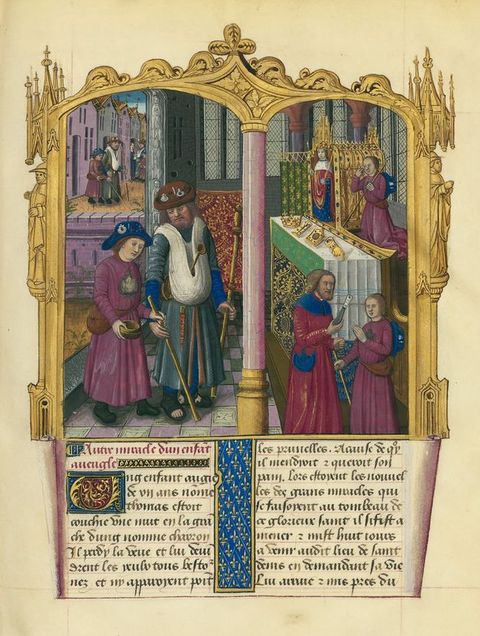 Autre miracle dun enfãt
aueugle
Ung enfant aagie
de vii ans nome
thomas estoit
couchie une nuit en la grã
che dung nomme charron
Il perdy la veue et lui deuī
drent les yeulx tous besto2
nez et ny apparoient poīt
les prunelles. A cause de q̃y
il mendioit ⁊ queroit son
pain. Lors estoient les nouuel
les des grans miracles qui
se faisoient au tombeau de
ce glorieux saint il si fist a
mener ⁊ mist huit iours
a venir audit lieu de saint
denis en demandant sa vie
Lui arriue ⁊ mis pres du